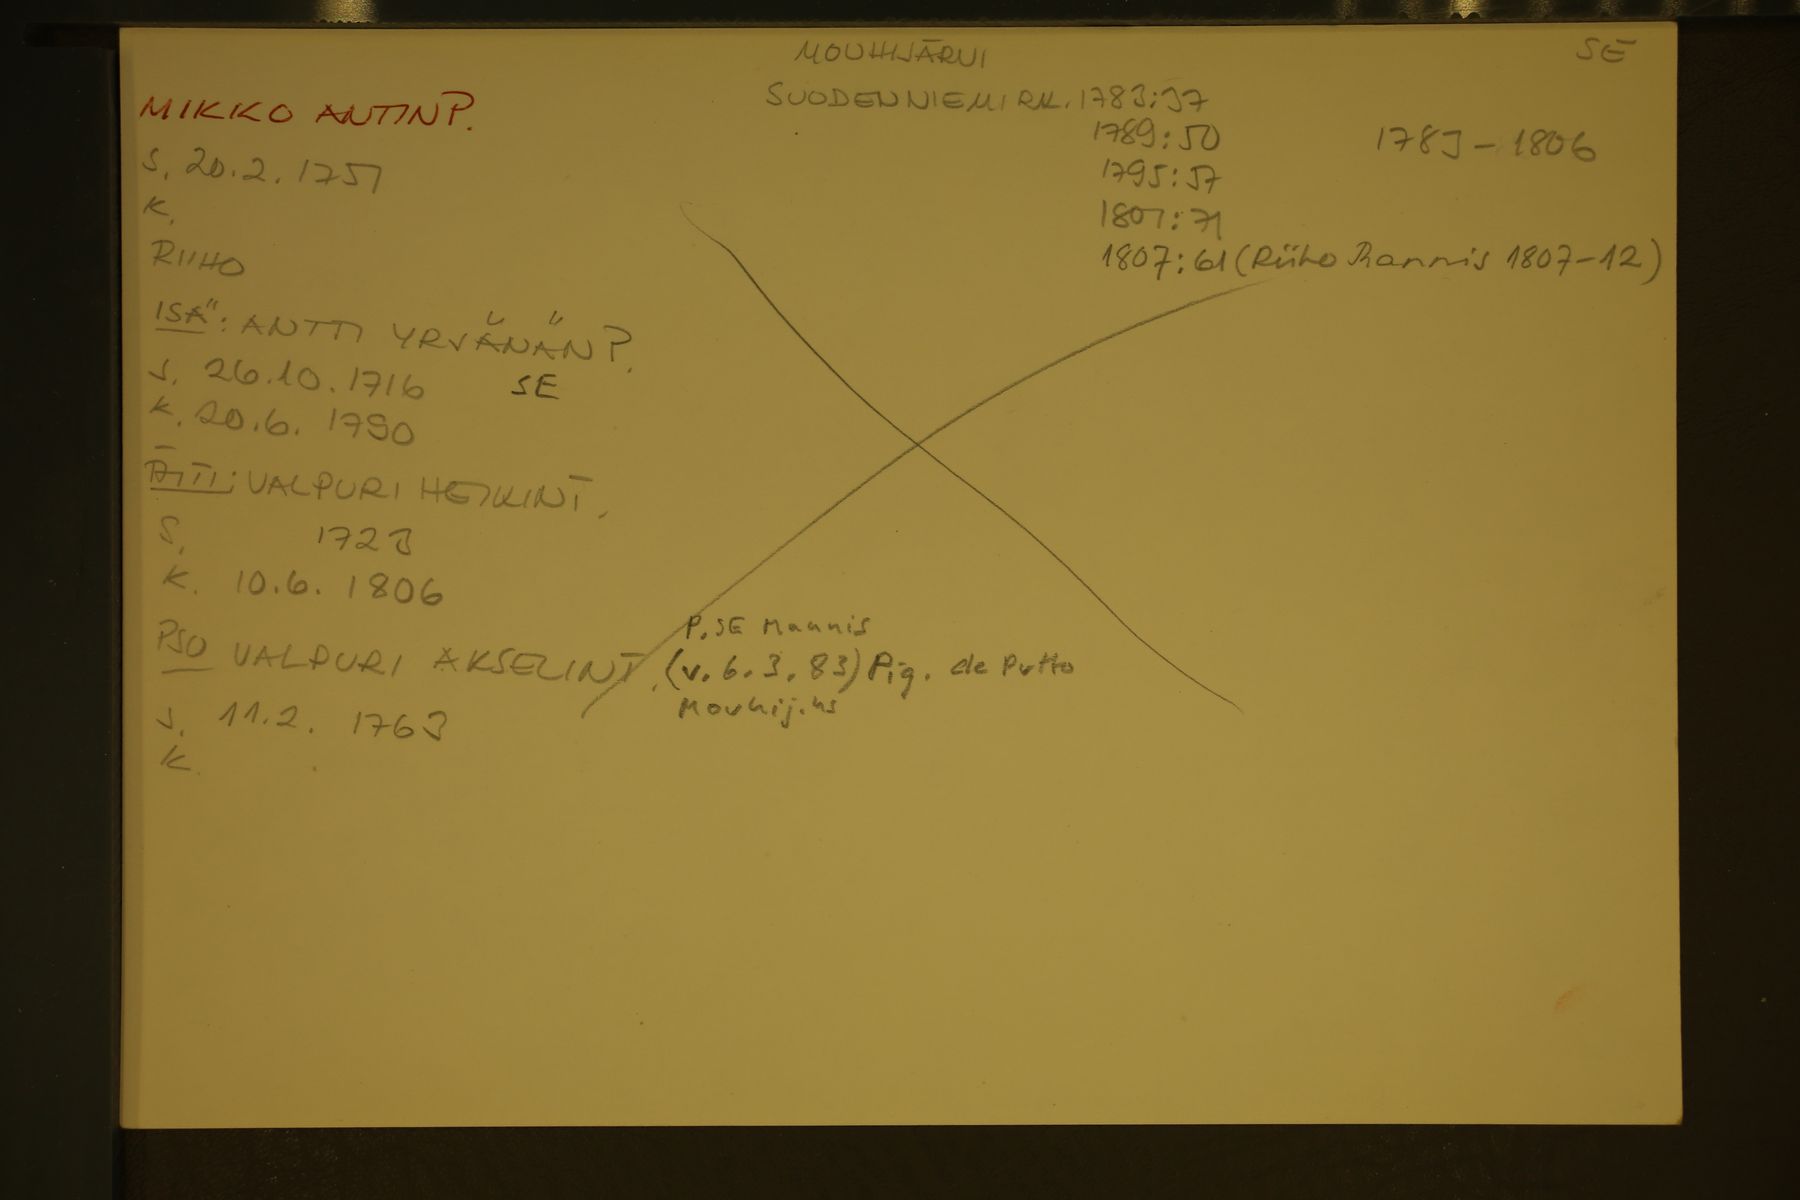 MOUHIJÄRVI
SE
MIKKO ANTINP.
SUODENNIEMI RK. 1783:37
1789:50
1783-1806
S. 20.2.1751
1795:57
K.
1801:71
RIIHO
1807:61 (Riiho Rannis 1807-12)
ISÄ: ANTTI YRVÄNÄNP.
S. 26.10.1716 SE
K. 20.6.1790
ÄITI: VALPURI HEIKINT.
S. 1723
K. 10.6.1806
P. SE Mannis
PSO VALPURI AKSELINT. (v. 6.3.83) Pig. de Putto
Mouhij.
S. 11.2.1763
K.